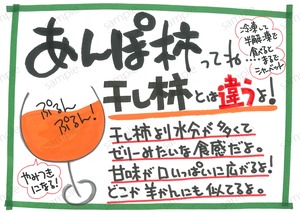 あんぽ柿ってね
冷凍して
半解凍で
食べると
・・・まるで
シャーベット
干し柿とは違うよ!
ぷるん
ぷるん!
やみつき
になる!
干し柿より水分が多くて
ゼリーみたいな食感だよ。
甘味が口いっぱいに広がるよ!
どこか羊かんにも似てるよ。